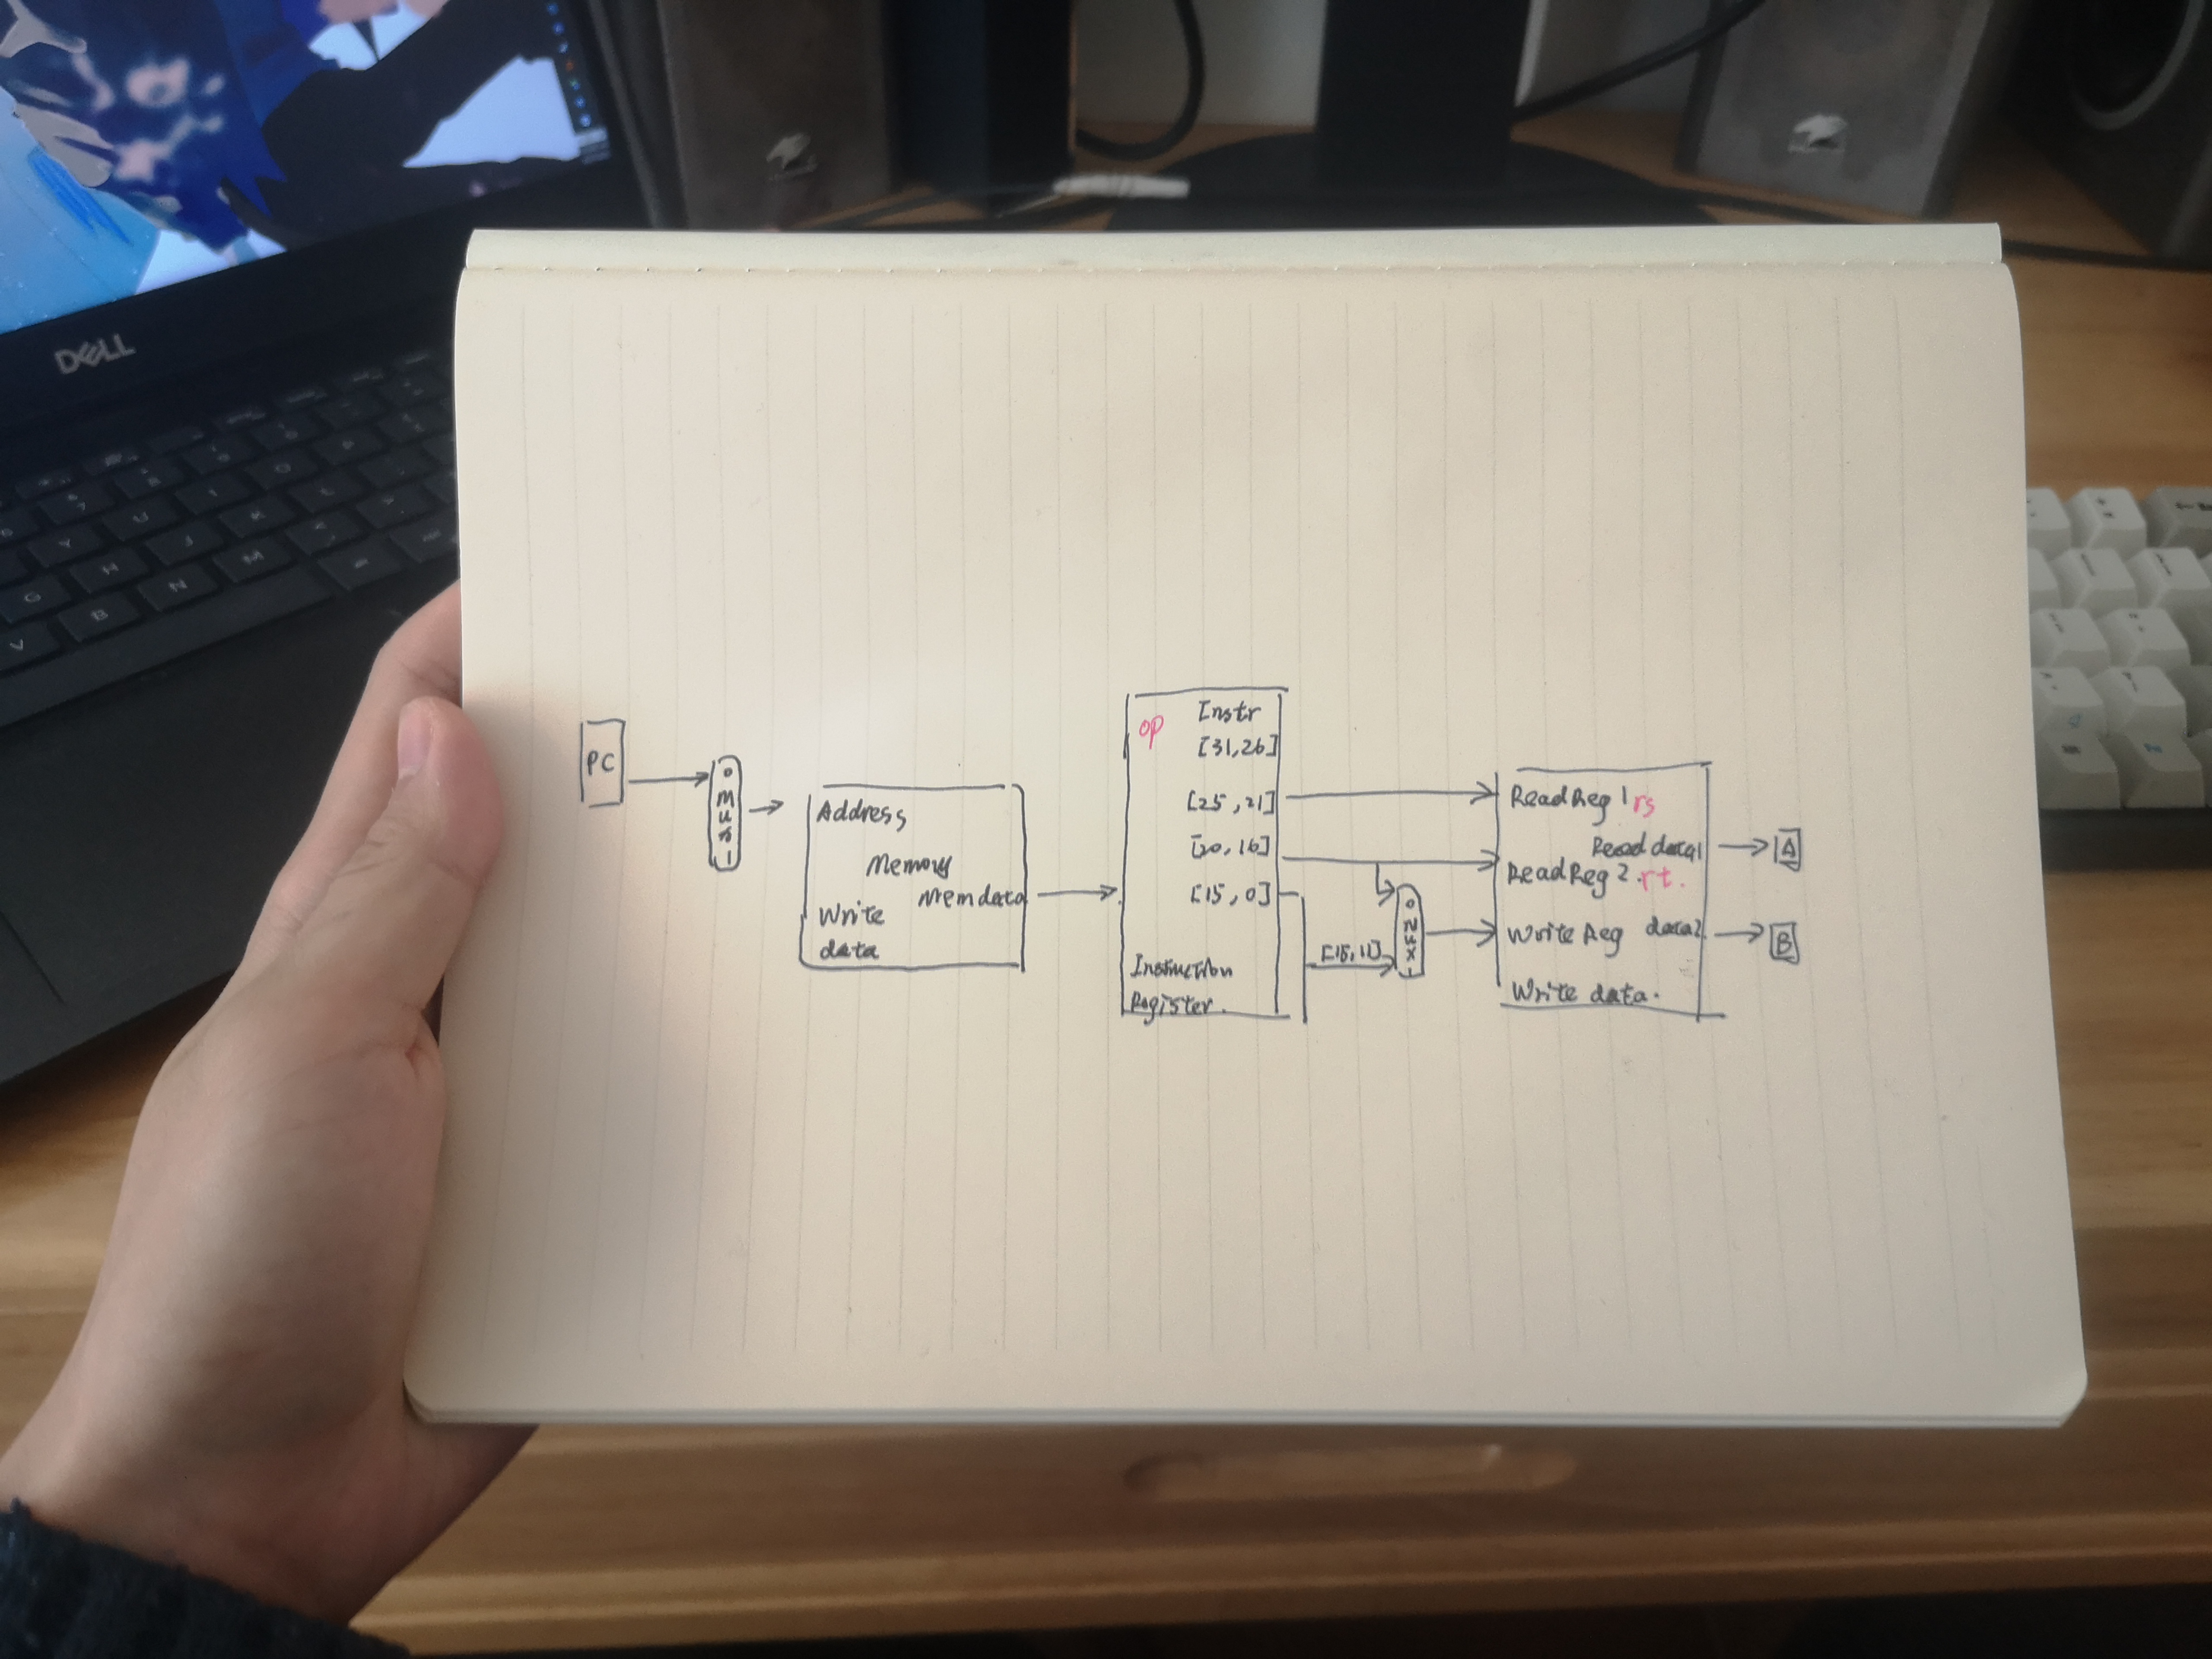 DELL
PC
0
M
u
x
1
Address
Memory
Memdata
Write
data
op
Instr
[31,26]
[25,21]
[20,16]
[15,0]
Instruction
Register.
[15,11]
0
M
u
x
1
ReadReg 1 rs
Read data1
ReadReg 2. rt.
Write Reg data2
Write data.
A
B